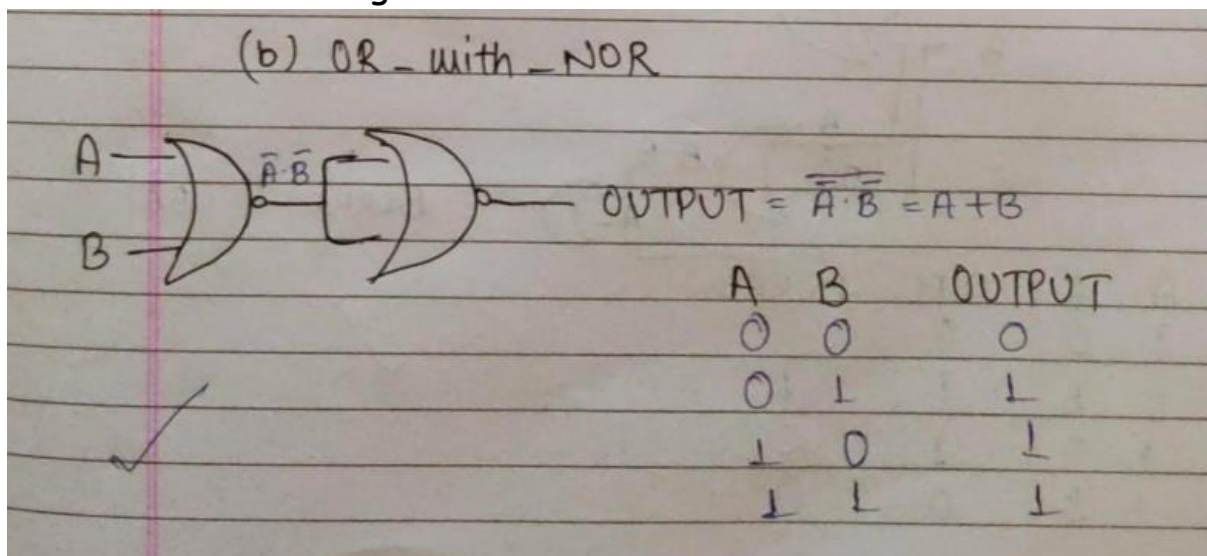 (b) OR_with_NOR
A
A̅·B̅
B
OUTPUT = \overline{A̅·B̅} = A+B
A B OUTPUT
0 0 0
0 1 1
1 0 1
1 1 1